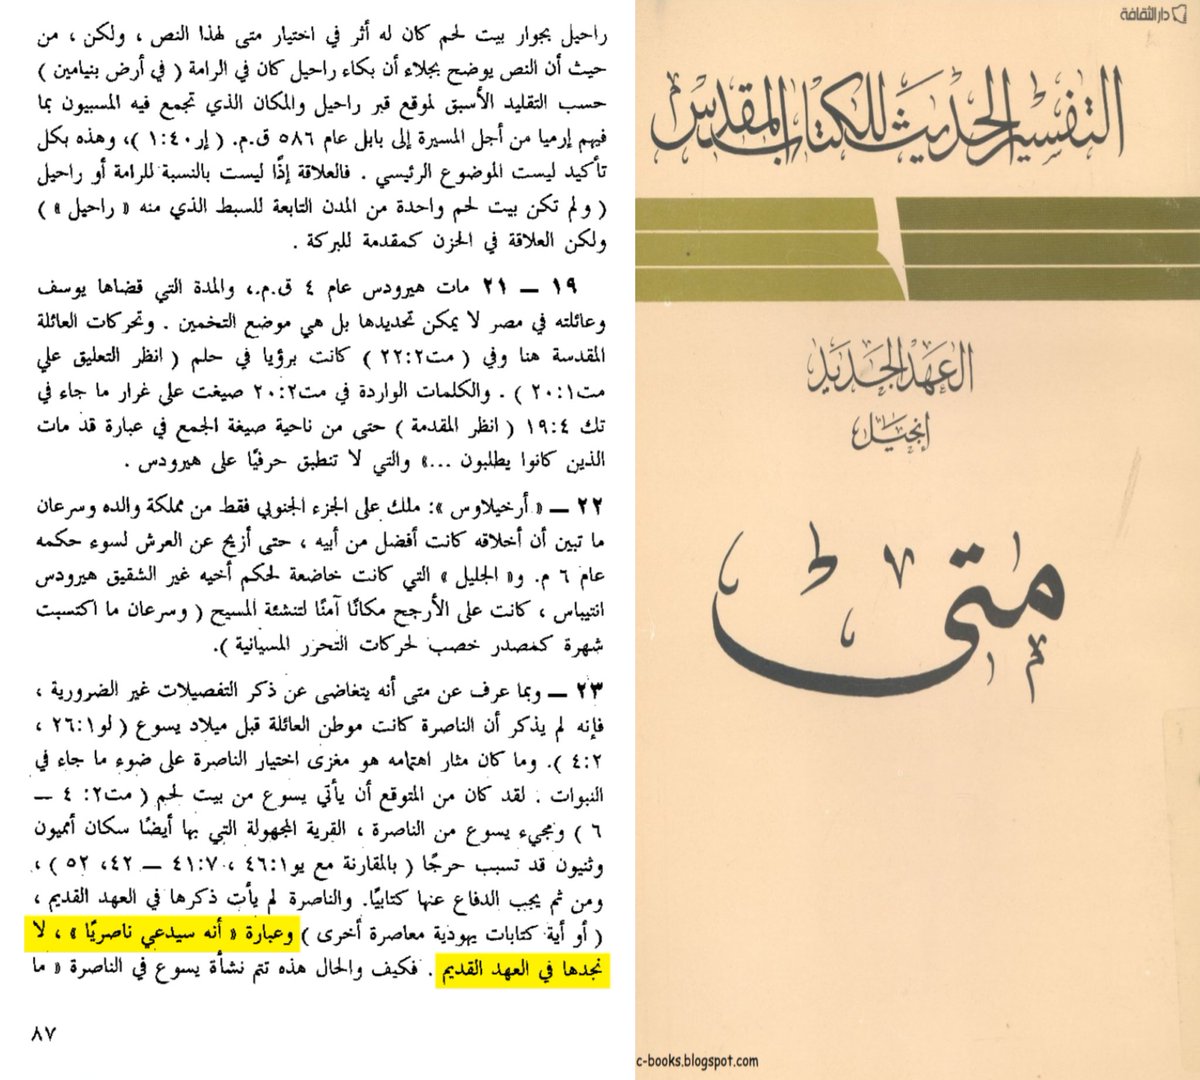 راحيل بجوار بيت لحم كان له أثر في اختيار متى لهذا النص ، ولكن ، من
حيث أن النص يوضح بجلاء أن بكاء راحيل كان في الرامة ( في أرض بنيامين )
حسب التقليد الأسبق لموقع قبر راحيل والمكان الذي تجمع فيه المسبيون بما
فيهم إرميا من أجل المسيرة إلى بابل عام ٥٨٦ ق.م. ( إر٤٠:١ )، وهذه بكل
تأكيد ليست الموضوع الرئيسي . فالعلاقة إذًا ليست بالنسبة للرامة أو راحيل
( ولم تكن بيت لحم واحدة من المدن التابعة للسبط الذي منه « راحيل » )
ولكن العلاقة في الحزن كمقدمة للبركة .
١٩ ــ ٢١ مات هيرودس عام ٤ ق.م.، والمدة التي قضاها يوسف
وعائلته في مصر لا يمكن تحديدها بل هي موضع التخمين . وتحركات العائلة
المقدسة هنا وفي ( مت٢٢:٢ ) كانت برؤيا في حلم ( انظر التعليق علي
مت٢٠:١ ) . والكلمات الواردة في مت٢٠:٢ صيغت على غرار ما جاء في
تك ١٩:٤ ( انظر المقدمة ) حتى من ناحية صيغة الجمع في عبارة قد مات
الذين كانوا يطلبون ...» والتي لا تنطبق حرفيًا على هيرودس .
٢٢ ــ « أرخيلاوس »: ملك على الجزء الجنوبي فقط من مملكة والده وسرعان
ما تبين أن أخلاقه كانت أفضل من أبيه ، حتى أزيح عن العرش لسوء حكمه
عام ٦ م. و« الجليل » التي كانت خاضعة لحكم أخيه غير الشقيق هيرودس
انتيباس ، كانت على الأرجح مكانًا آمنًا لتنشئة المسيح ( وسرعان ما اكتسبت
شهرة كمصدر خصب لحركات التحرر المسيانية ).
٢٣ ــ وبما عرف عن متى أنه يتغاضى عن ذكر التفصيلات غير الضرورية ،
فإنه لم يذكر أن الناصرة كانت موطن العائلة قبل ميلاد يسوع ( لو٢٦:١ ،
٤:٢ ). وما كان مثار اهتمامه هو مغزى اختيار الناصرة على ضوء ما جاء في
النبوات . لقد كان من المتوقع أن يأتي يسوع من بيت لحم ( مت٢: ٤ ــ
٦ ) ومجيء يسوع من الناصرة ، القرية المجهولة التي بها أيضًا سكان أمميون
وثنيون قد تسبب حرجًا ( بالمقارنة مع يو٤٦:١ ، ٤١:٧ ــ ٤٢، ٥٢ ) ،
ومن ثم يجب الدفاع عنها كتابيًا. والناصرة لم يأت ذكرها في العهد القديم ،
( أو أية كتابات يهودية معاصرة أخرى ) وعبارة « أنه سيدعي ناصريًا » ، لا
نجدها في العهد القديم . فكيف والحال هذه تتم نشأة يسوع في الناصرة « ما
٨٧
دار الثقافة
التفسير الحديث للكتاب المقدس
العهد الجديد
إنجيل
متى
c-books.blogspot.com